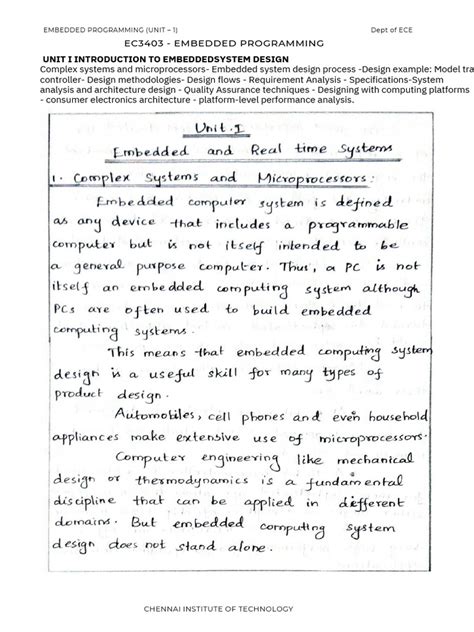 EMBEDDED PROGRAMMING (UNIT – 1) Dept of ECE
EC3403 - EMBEDDED PROGRAMMING
UNIT I INTRODUCTION TO EMBEDDEDSYSTEM DESIGN
Complex systems and microprocessors- Embedded system design process -Design example: Model tra
controller- Design methodologies- Design flows - Requirement Analysis - Specifications-System
analysis and architecture design - Quality Assurance techniques - Designing with computing platforms
- consumer electronics architecture - platform-level performance analysis.
Unit. I
Embedded and Real time Systems
1. Complex Systems and Microprocessors:
Embedded computer system is defined
as any device that includes a programmable
computer but is not itself intended to be
a general purpose computer. Thus, a PC is not
itself an embedded computing system although
PCs are often used to build embedded
computing systems.
This means that embedded computing system
design is a useful skill for many types of
product design.
Automobiles, cell phones and even household
appliances make extensive use of microprocessors.
Computer engineering like mechanical
design or thermodynamics is a fundamental
discipline that can be applied in different
domains. But embedded computing system
design does not stand alone.
CHENNAI INSTITUTE OF TECHNOLOGY